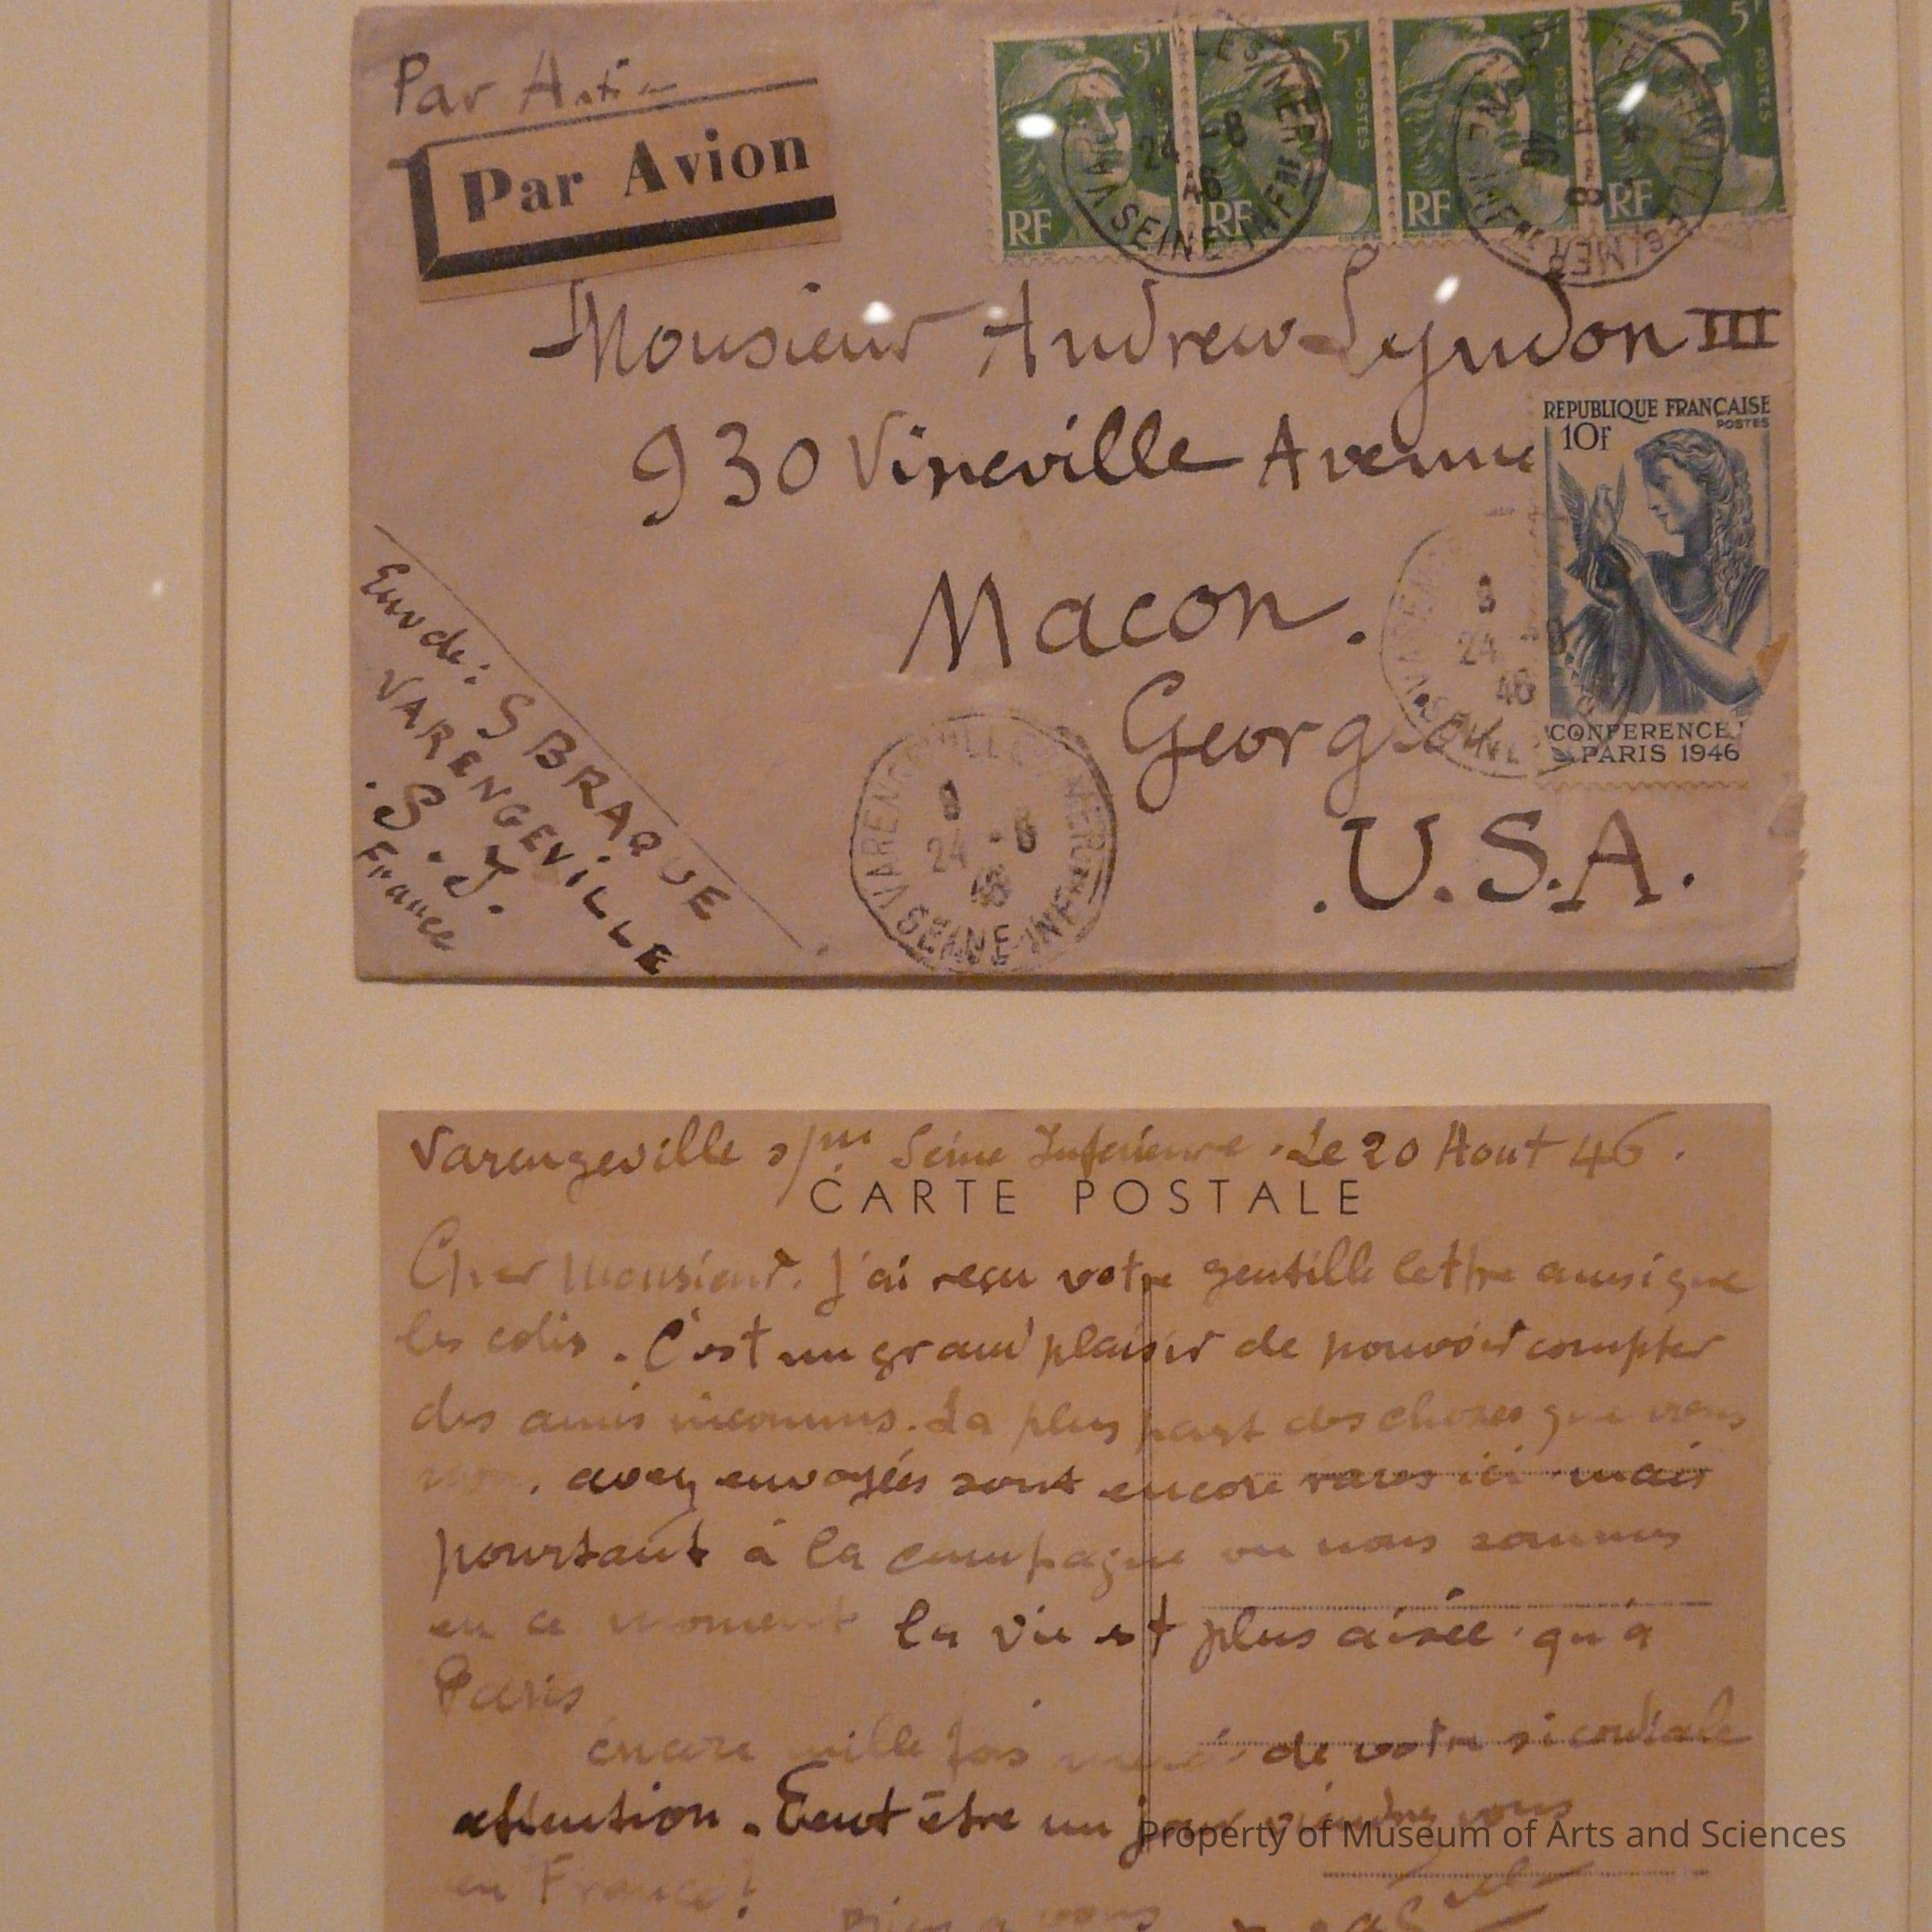 Par Avion
Par Avion
5f 5f POSTES 5f POSTES 5f POSTES
RF RF RF RF
24 -8
SEINE INFRE
Monsieur Andrew Lyndon III
930 Vineville Avenue
REPUBLIQUE FRANÇAISE
POSTES
10F
CONFERENCE
PARIS 1946
Macon.
Georgia
.U.S.A.
8
24 -8
46
VARENGEVILLE S MER
8
24 -8
46
SEINE INFRE
Env de: G BRAQUE
VARENGEVILLE
.S.I.
France
Varengeville s/mer Seine Inferieure. Le 20 Aout 46.
CARTE POSTALE
Cher Monsieur. J'ai reçu votre gentille lettre ainsi que
les colis. C'est un grand plaisir de pouvoir compter
des amis inconnus. La plus part des choses que vous
avez envoyées sont encore rares ici mais
pourtant à la campagne ou nous sommes
en ce moment la vie est plus aisée qu'a
Paris
encore mille fois merci de votre si cordiale
attention. Peut être un jour viendrez vous
en France!
Bien a vous
Property of Museum of Arts and Sciences